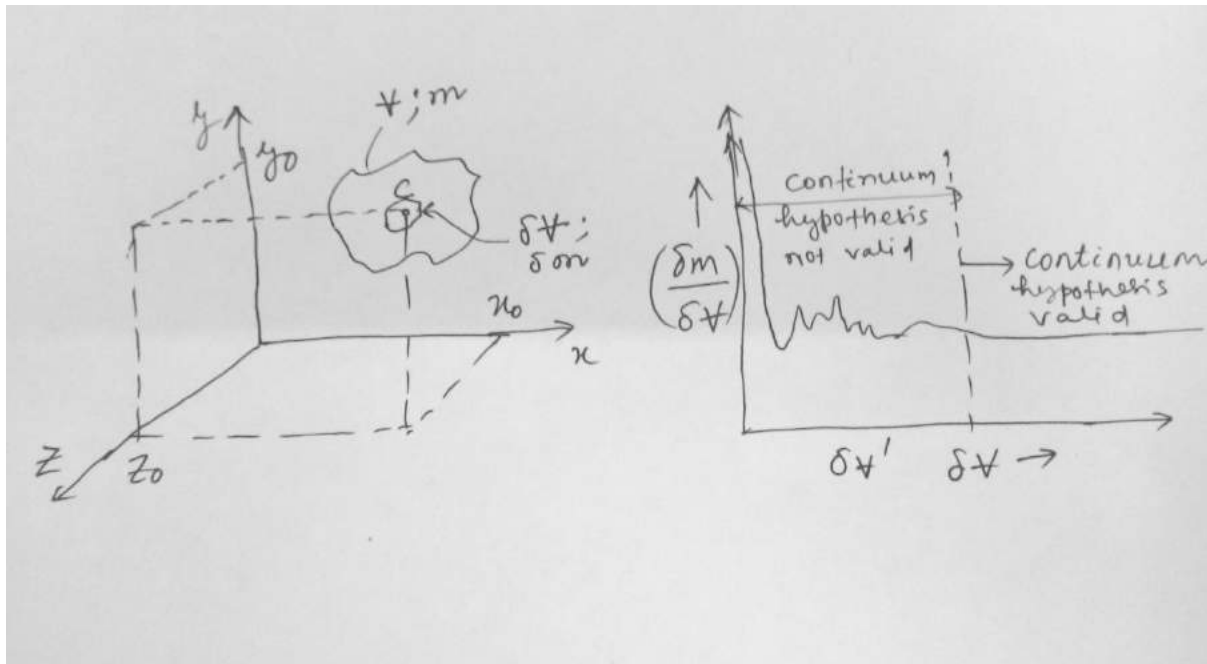 y
y₀
V̶; m
C
δV̶;
δm
x₀
x
Z
Z₀
(δm/δV̶)
continuum
hypothesis
not valid
continuum
hypothesis
valid
δV̶'
δV̶ →